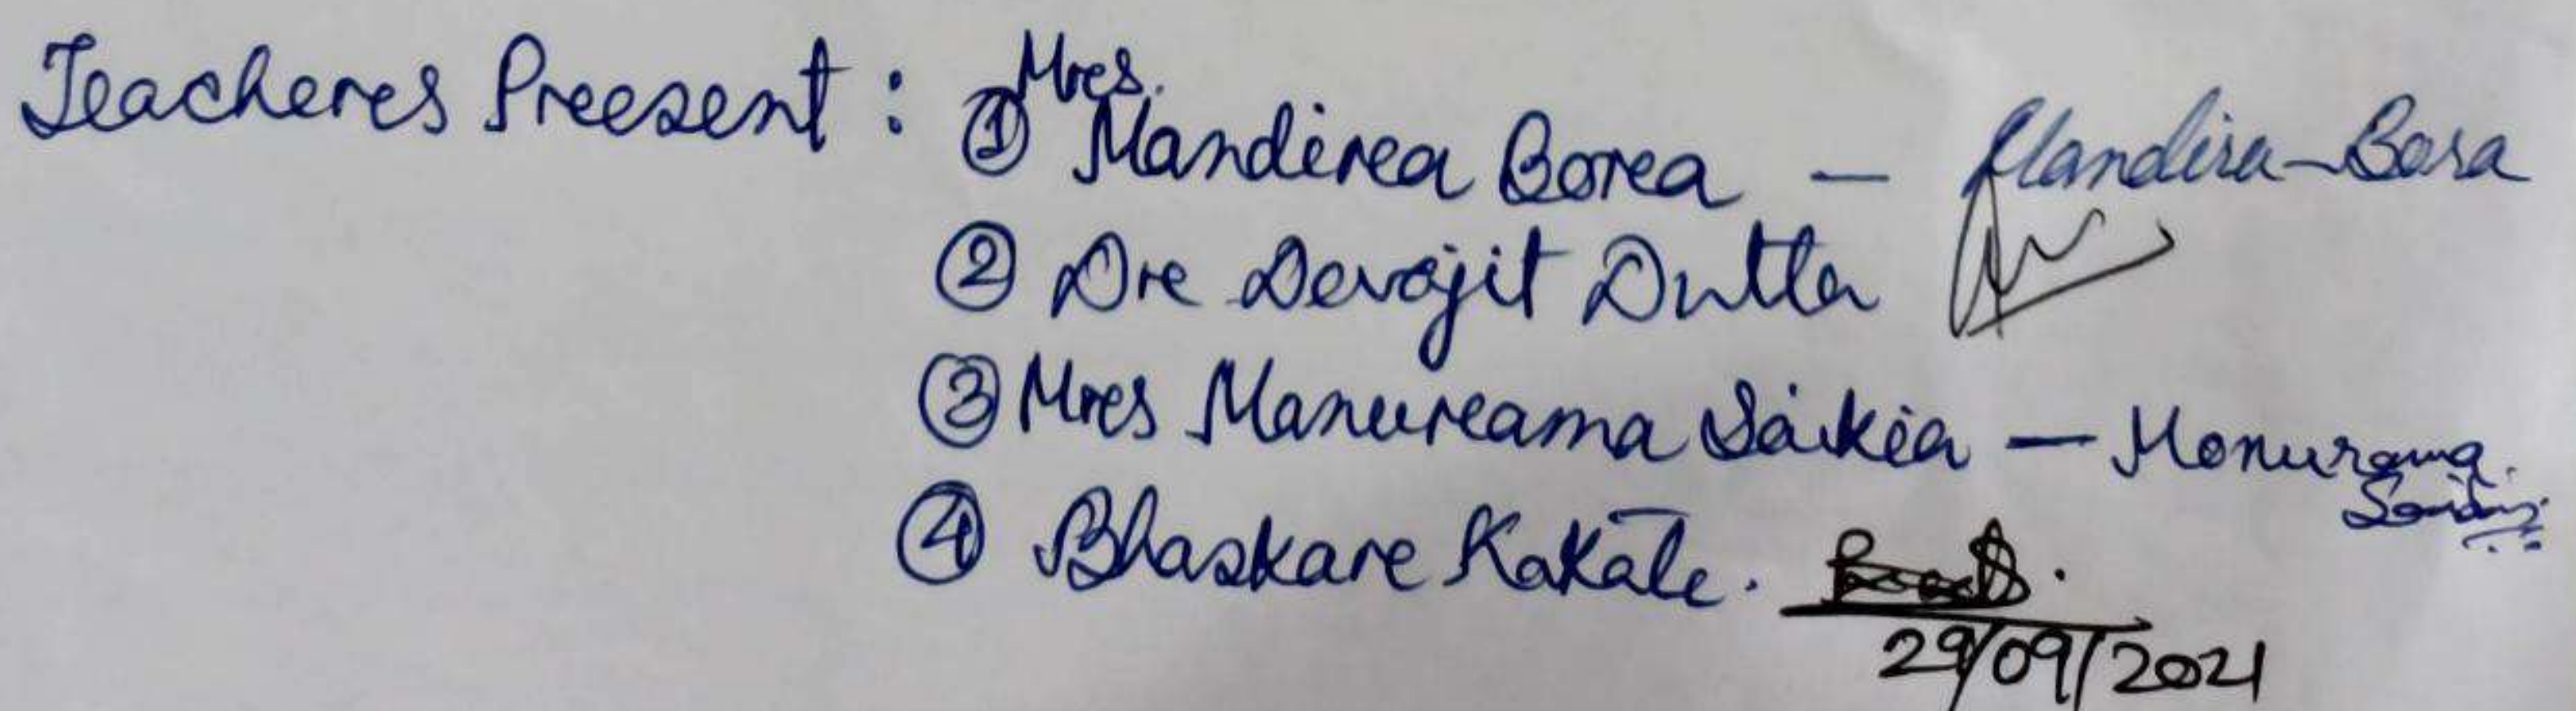 Teachers Present : ① Mrs. Mandira Bora — Mandira Bora
② Dr Devajit Dutta
③ Mrs Manurama Saikia — Monurama
Saikia
④ Bhaskar Kakati.
29/09/2021